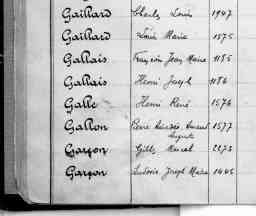 Gaillard Charles Louis 1947
Gaillard Louis Marie 1575
Gallais François Jean Marie 1185
Gallais Henri Joseph 1186
Galle Henri René 1574
Gallon Pierre Amédée Amand 1577
Auguste
Garçon Gilles Marcel 2273
Garçon Antoine Joseph Marie 1445